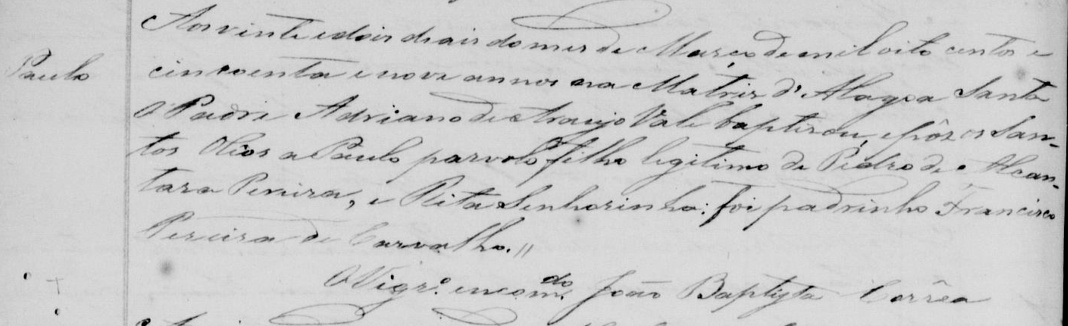 Aos vinte e dois dias do mes de Março de mil oito centos e
Paulo
cincoenta e nove annos na Matriz d'Alagoa Santa
o Padre Adriano de Araujo Vale baptisou, e pôz os San-
tos Olios a Paulo parvolo filho legitimo de Pedro de Alcan-
tara Pereira, e Rita Senhorinha: foi padrinho Francisco
Pereira de Carvalho.//
O Vigr.º encom.do João Baptista Corrêa